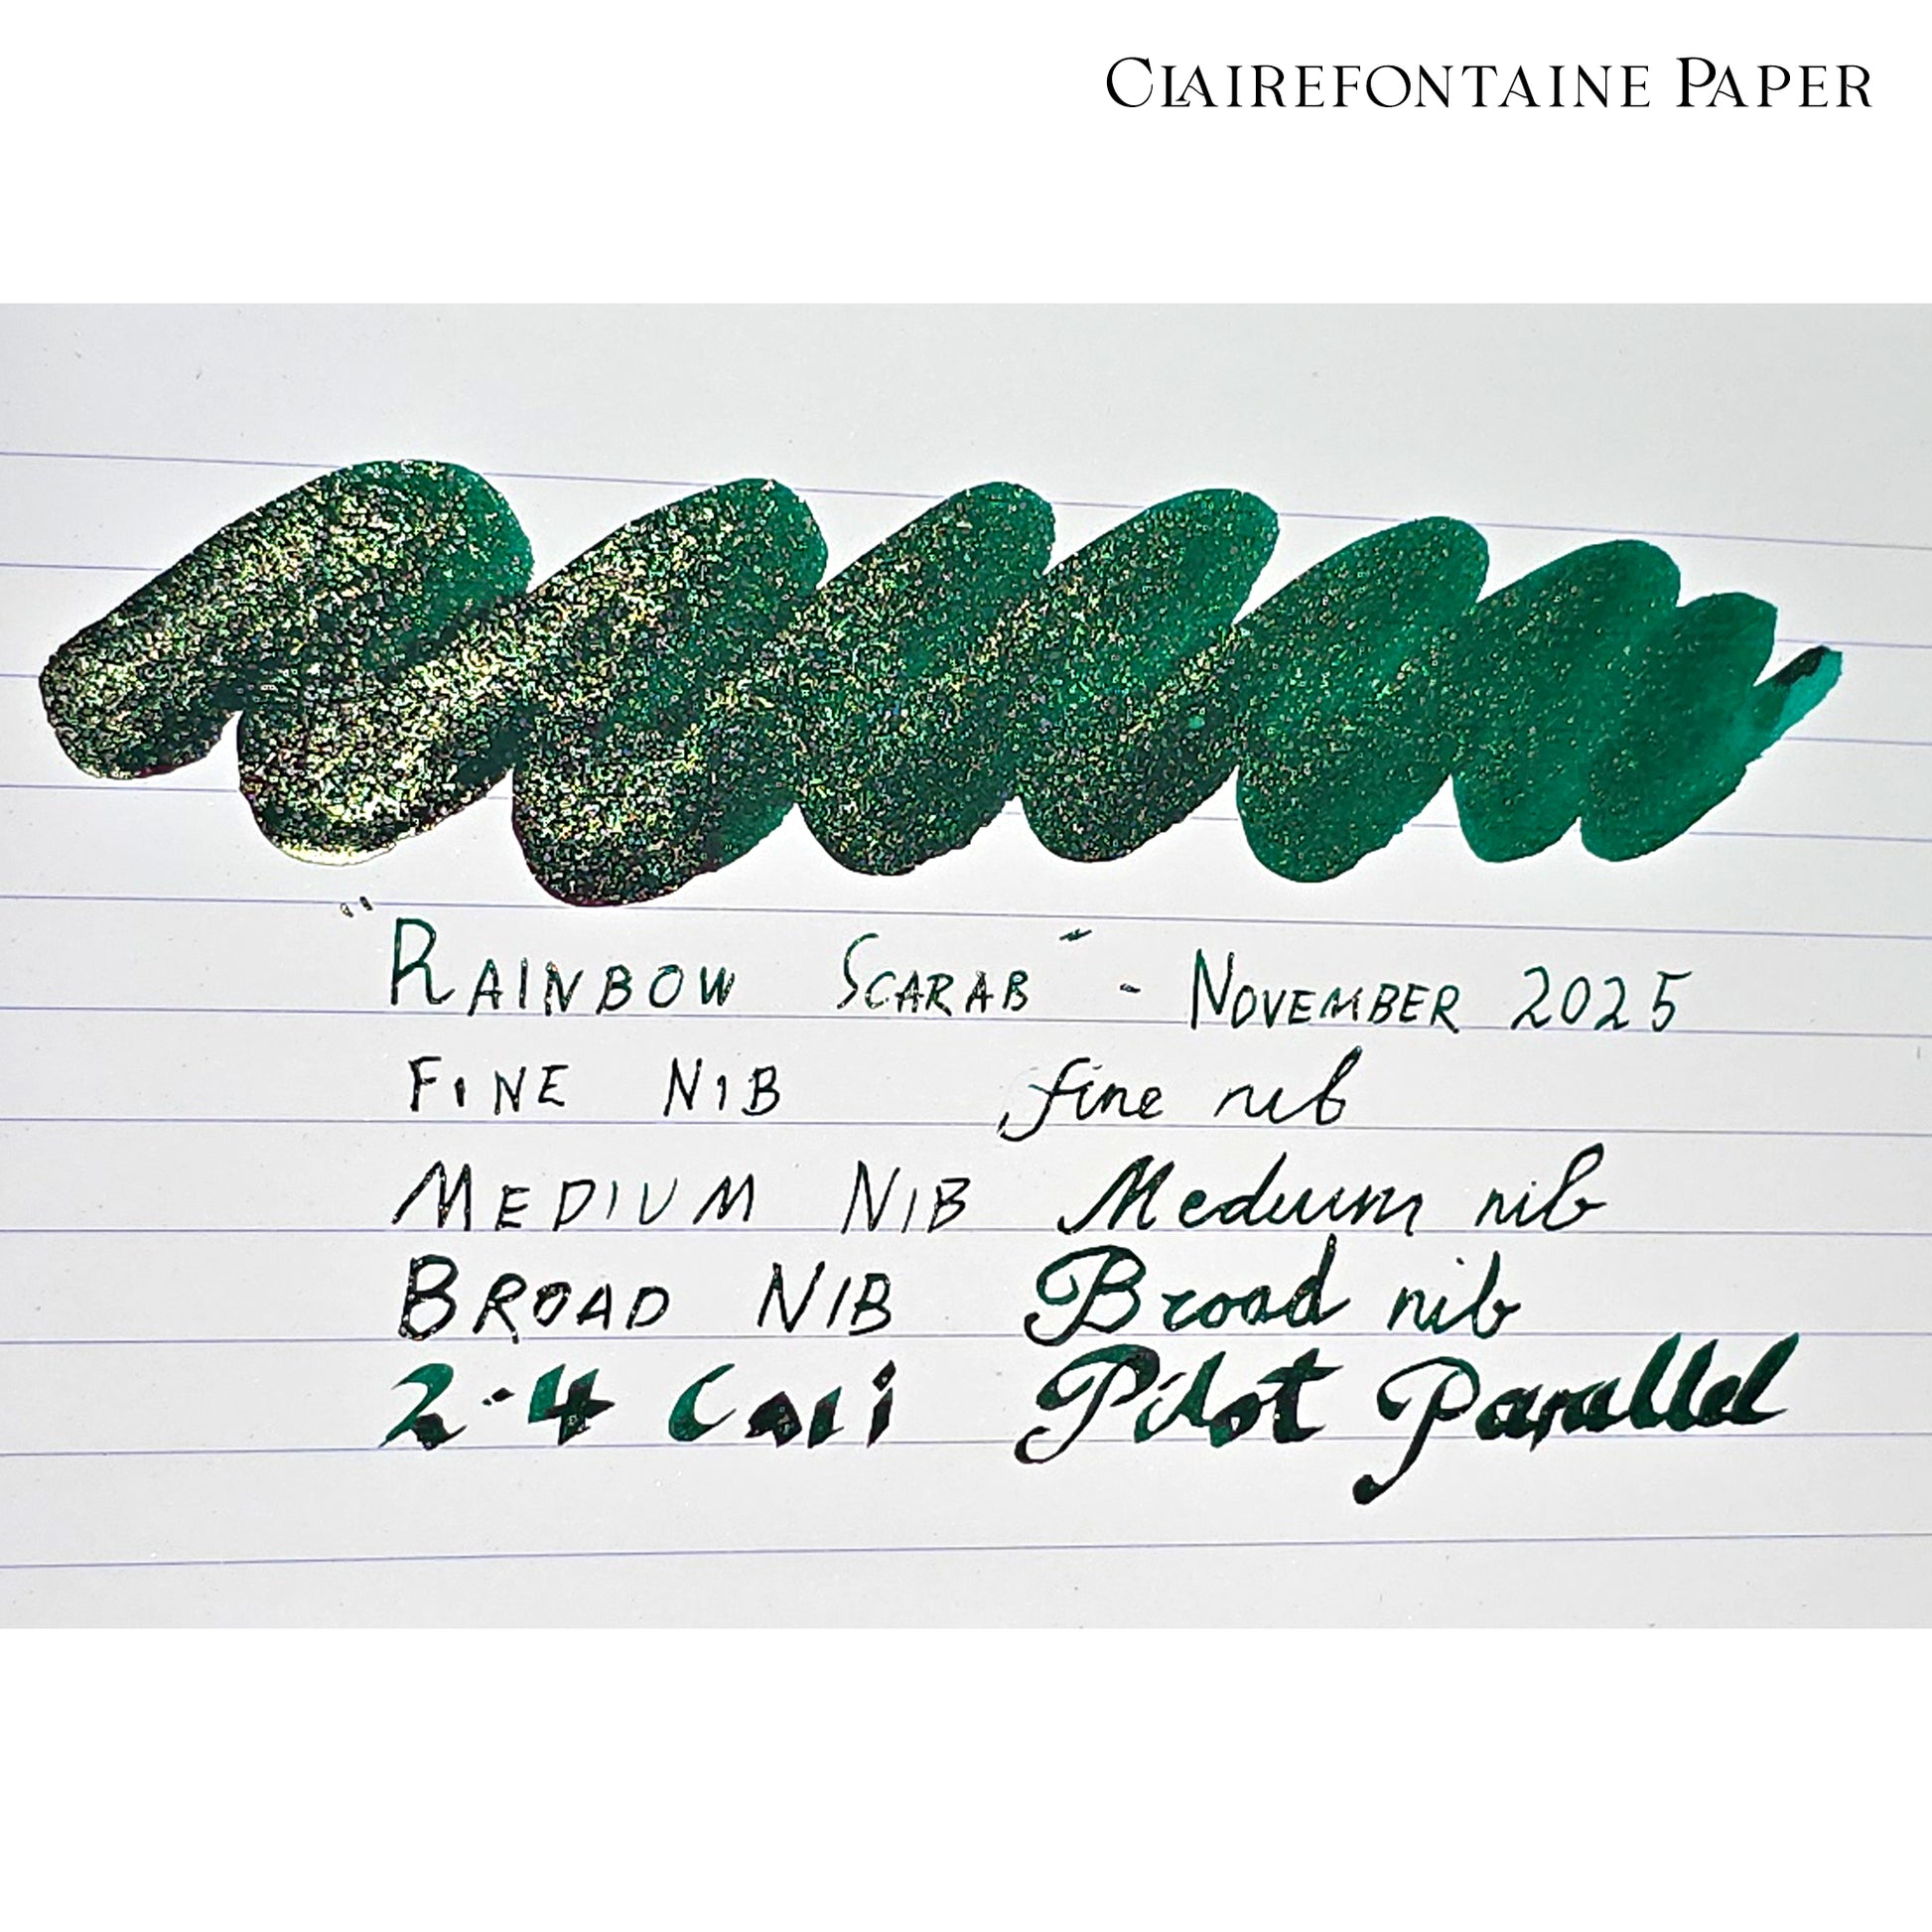 CLAIREFONTAINE PAPER
"RAINBOW SCARAB" - NOVEMBER 2025
FINE NIB fine nib
MEDIUM NIB Medium nib
BROAD NIB Broad nib
2-4 Cali Pilot Parallel